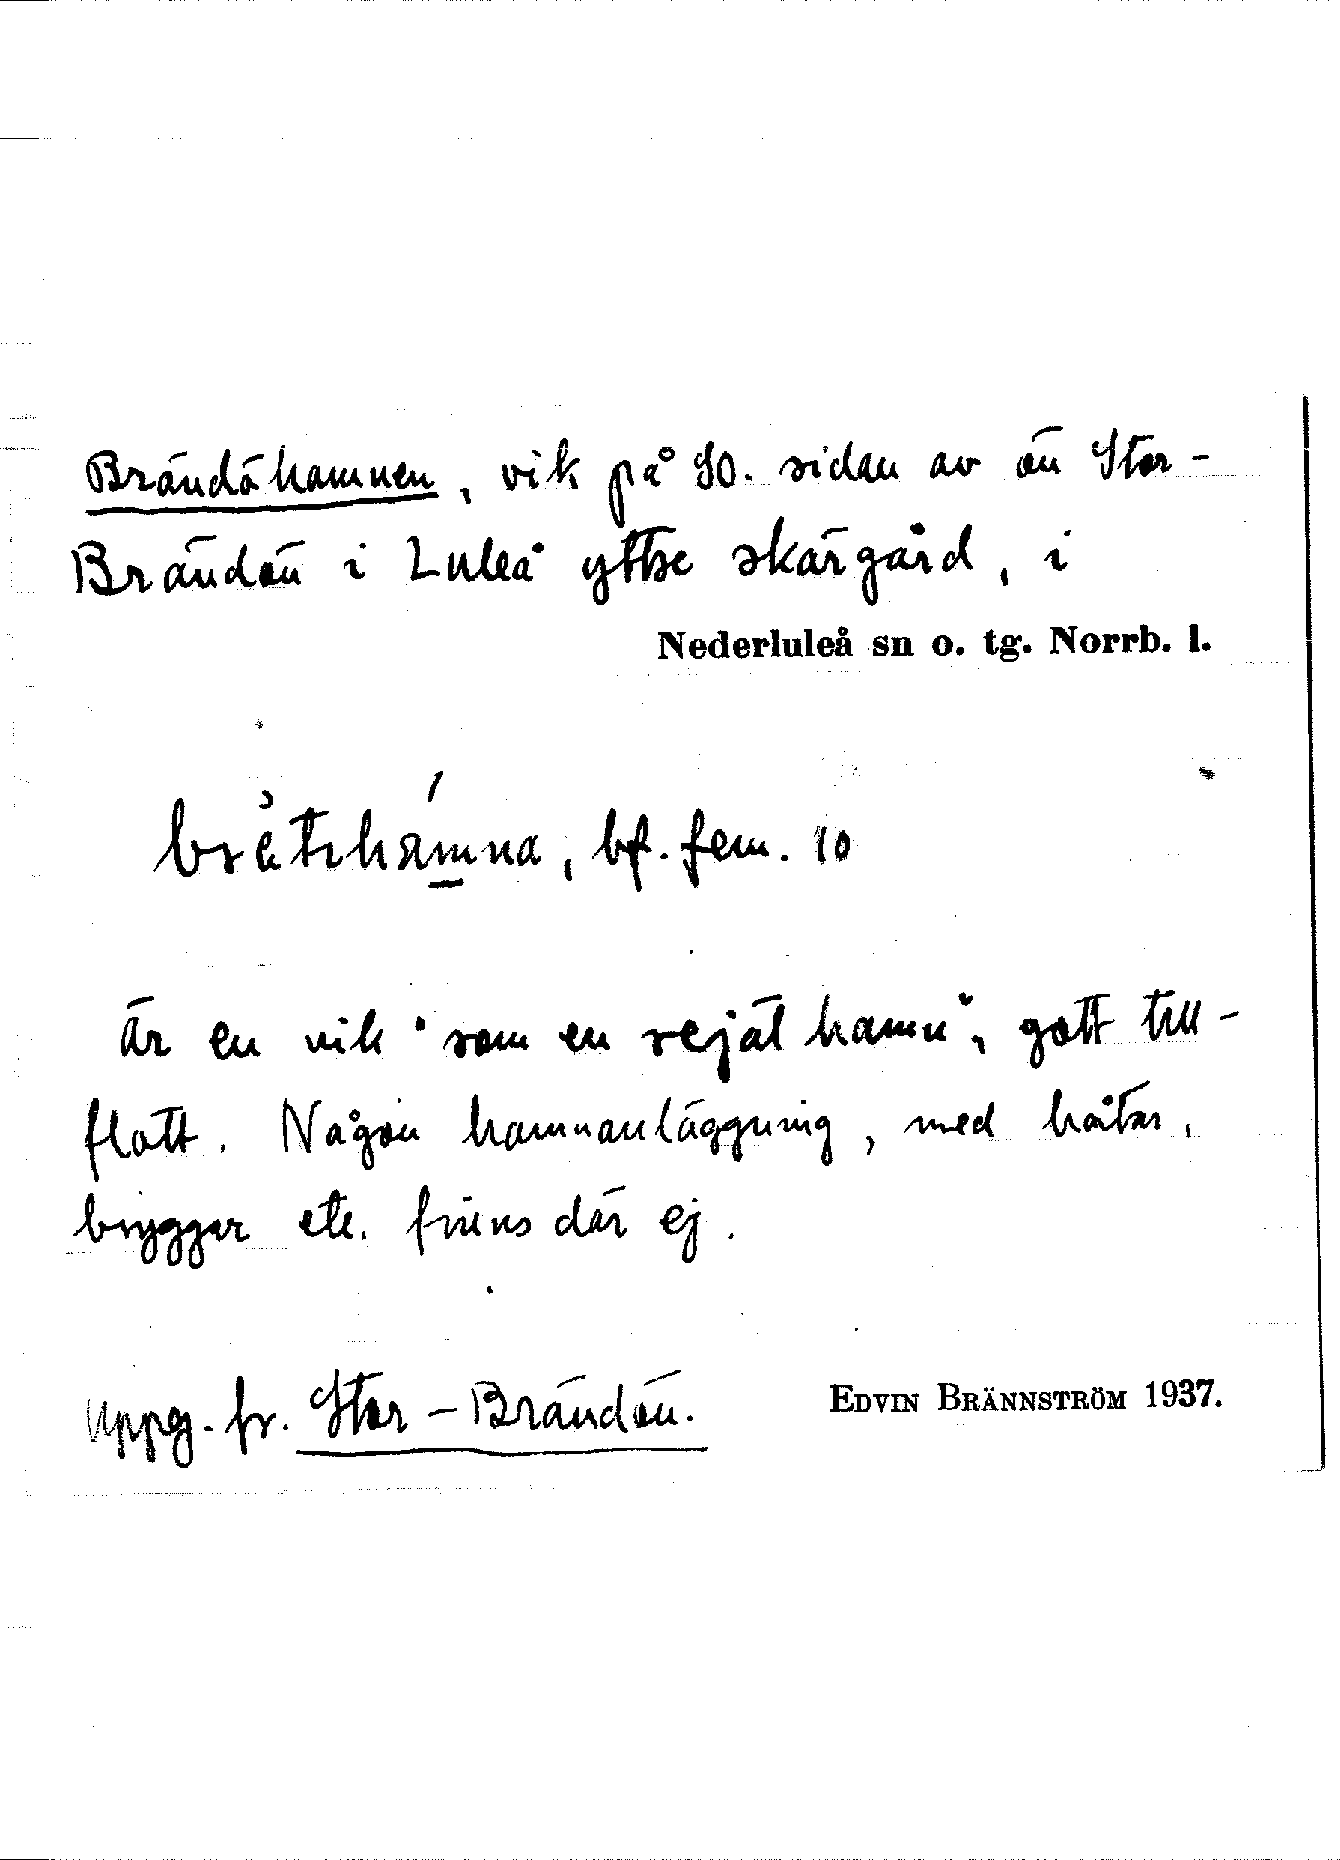 Brändöhamnen, vik på SO. sidan av ön Stor-
Brändön i Luleå yttre skärgård, i
Nederluleå sn o. tg. Norrb. l.
bf. fem. 10
är en vik "som en rejäl hamn", gott till-
flott. Någon hamnanläggning, med
bryggor etc. finns där ej.
Uppg. fr. Stor-Brändön.
EDVIN BRÄNNSTRÖM 1937.